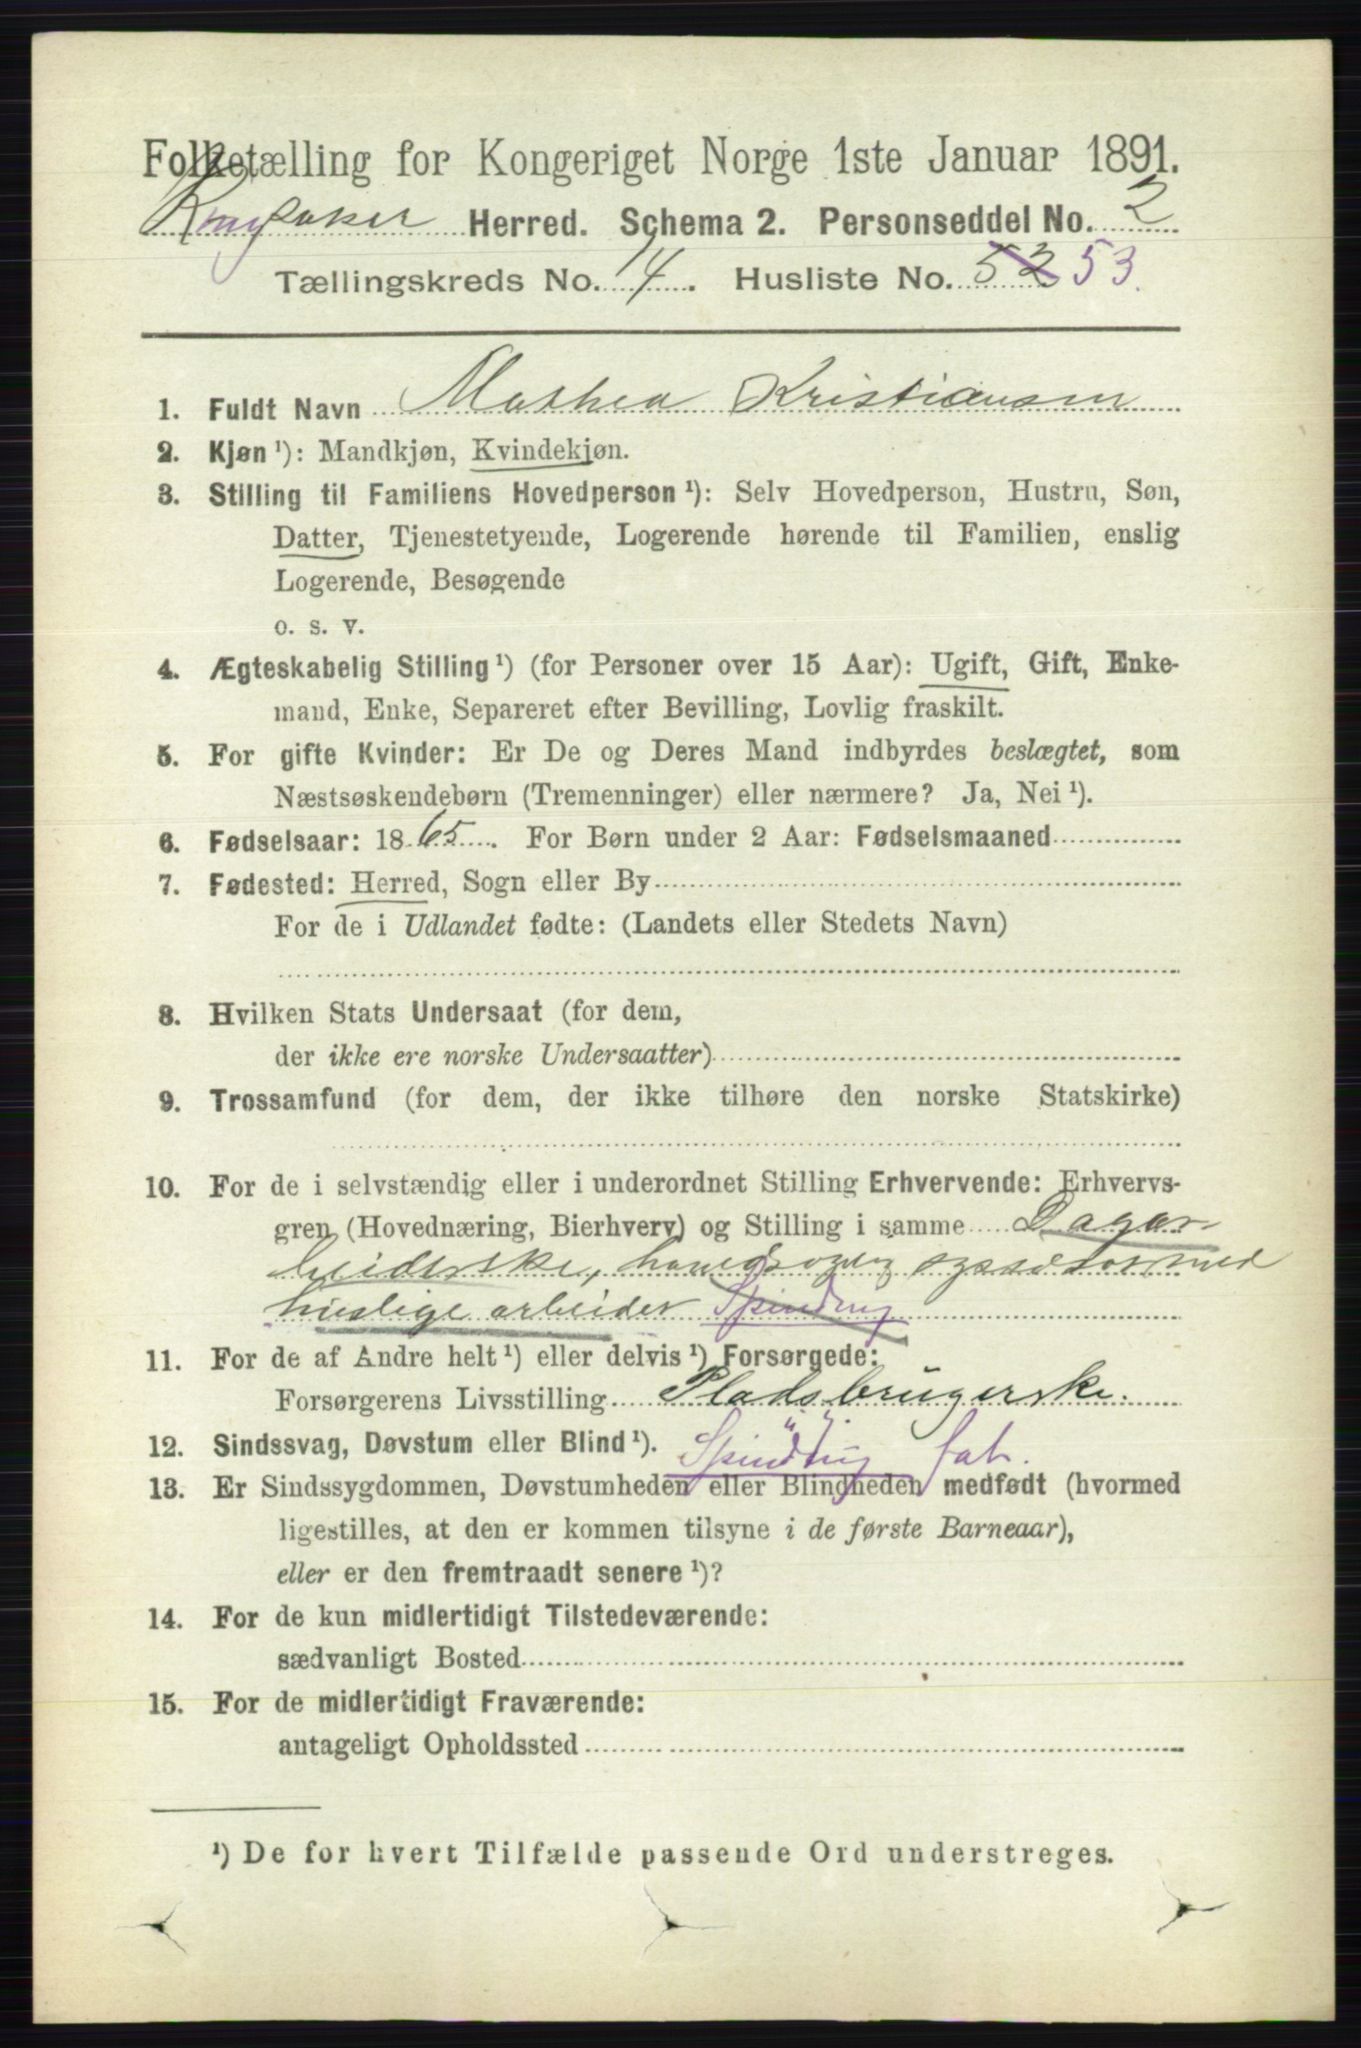 Folketælling for Kongeriget Norge 1ste Januar 1891.
Ringsaker Herred. Schema 2. Personseddel No. 2
Tællingskreds No. 14. Husliste No. 52 53.
1. Fuldt Navn Mathea Kristiansen
2. Kjøn ¹): Mandkjøn, Kvindekjøn.
3. Stilling til Familiens Hovedperson ¹): Selv Hovedperson, Hustru, Søn,
Datter, Tjenestetyende, Logerende hørende til Familien, enslig
Logerende, Besøgende
o. s. v.
4. Ægteskabelig Stilling ¹) (for Personer over 15 Aar): Ugift, Gift, Enke-
mand, Enke, Separeret efter Bevilling, Lovlig fraskilt.
5. For gifte Kvinder: Er De og Deres Mand indbyrdes beslægtet, som
Næstsøskendebørn (Tremenninger) eller nærmere? Ja, Nei ¹).
6. Fødselsaar: 1865. For Børn under 2 Aar: Fødselsmaaned
7. Fødested: Herred, Sogn eller By
For de i Udlandet fødte: (Landets eller Stedets Navn)
8. Hvilken Stats Undersaat (for dem,
der ikke ere norske Undersaatter)
9. Trossamfund (for dem, der ikke tilhøre den norske Statskirke)
10. For de i selvstændig eller i underordnet Stilling Erhvervende: Erhvervs-
gren (Hovednæring, Bierhverv) og Stilling i samme Dagar-
beiderske, med
huslige arbeider Spinding
11. For de af Andre helt ¹) eller delvis ¹) Forsørgede:
Forsørgerens Livsstilling Pladsbrugerske.
12. Sindssvag, Døvstum eller Blind ¹). Spinding
13. Er Sindssygdommen, Døvstumheden eller Blindheden medfødt (hvormed
ligestilles, at den er kommen tilsyne i de første Barneaar),
eller er den fremtraadt senere ¹)?
14. For de kun midlertidigt Tilstedeværende:
sædvanligt Bosted
15. For de midlertidigt Fraværende:
antageligt Opholdssted
¹) De for hvert Tilfælde passende Ord understreges.